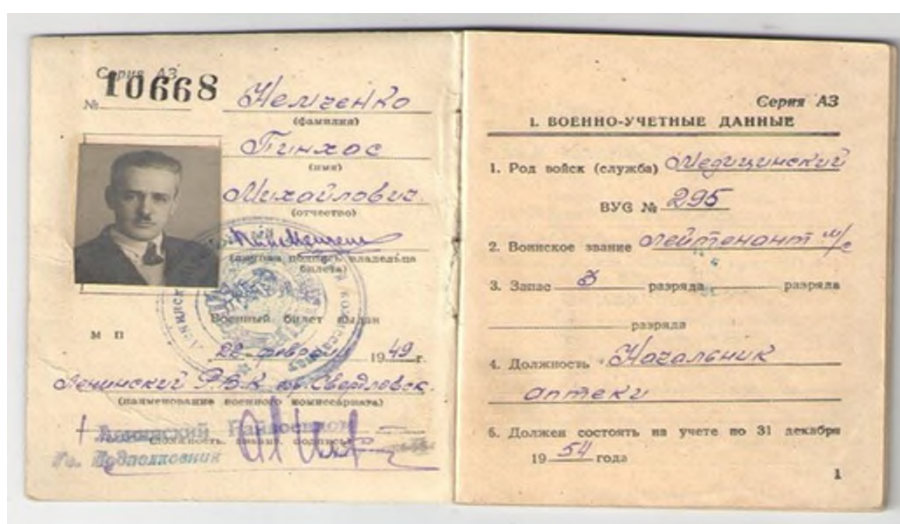 Серия АЗ
№ 10668
Немченко
(фамилия)
Пинхас
(имя)
Михайлович
(отчество)
(личная подпись владельца
билета)
Военный билет выдан
М П
22 февраля 1949 г.
Ленинский Р.В.К. гор. Свердловск.
(наименование военного комиссариата)
Ленинский
(должность, звание, подпись)
Подполковник
Серия АЗ
1. ВОЕННО-УЧЕТНЫЕ ДАННЫЕ
1. Род войск (служба) Медицинский
ВУС № 295
2. Воинское звание лейтенант м/с
3. Запас 3 разряда разряда
разряда
4. Должность Начальник
аптеки
5. Должен состоять на учете по 31 декабря
1954 года
1